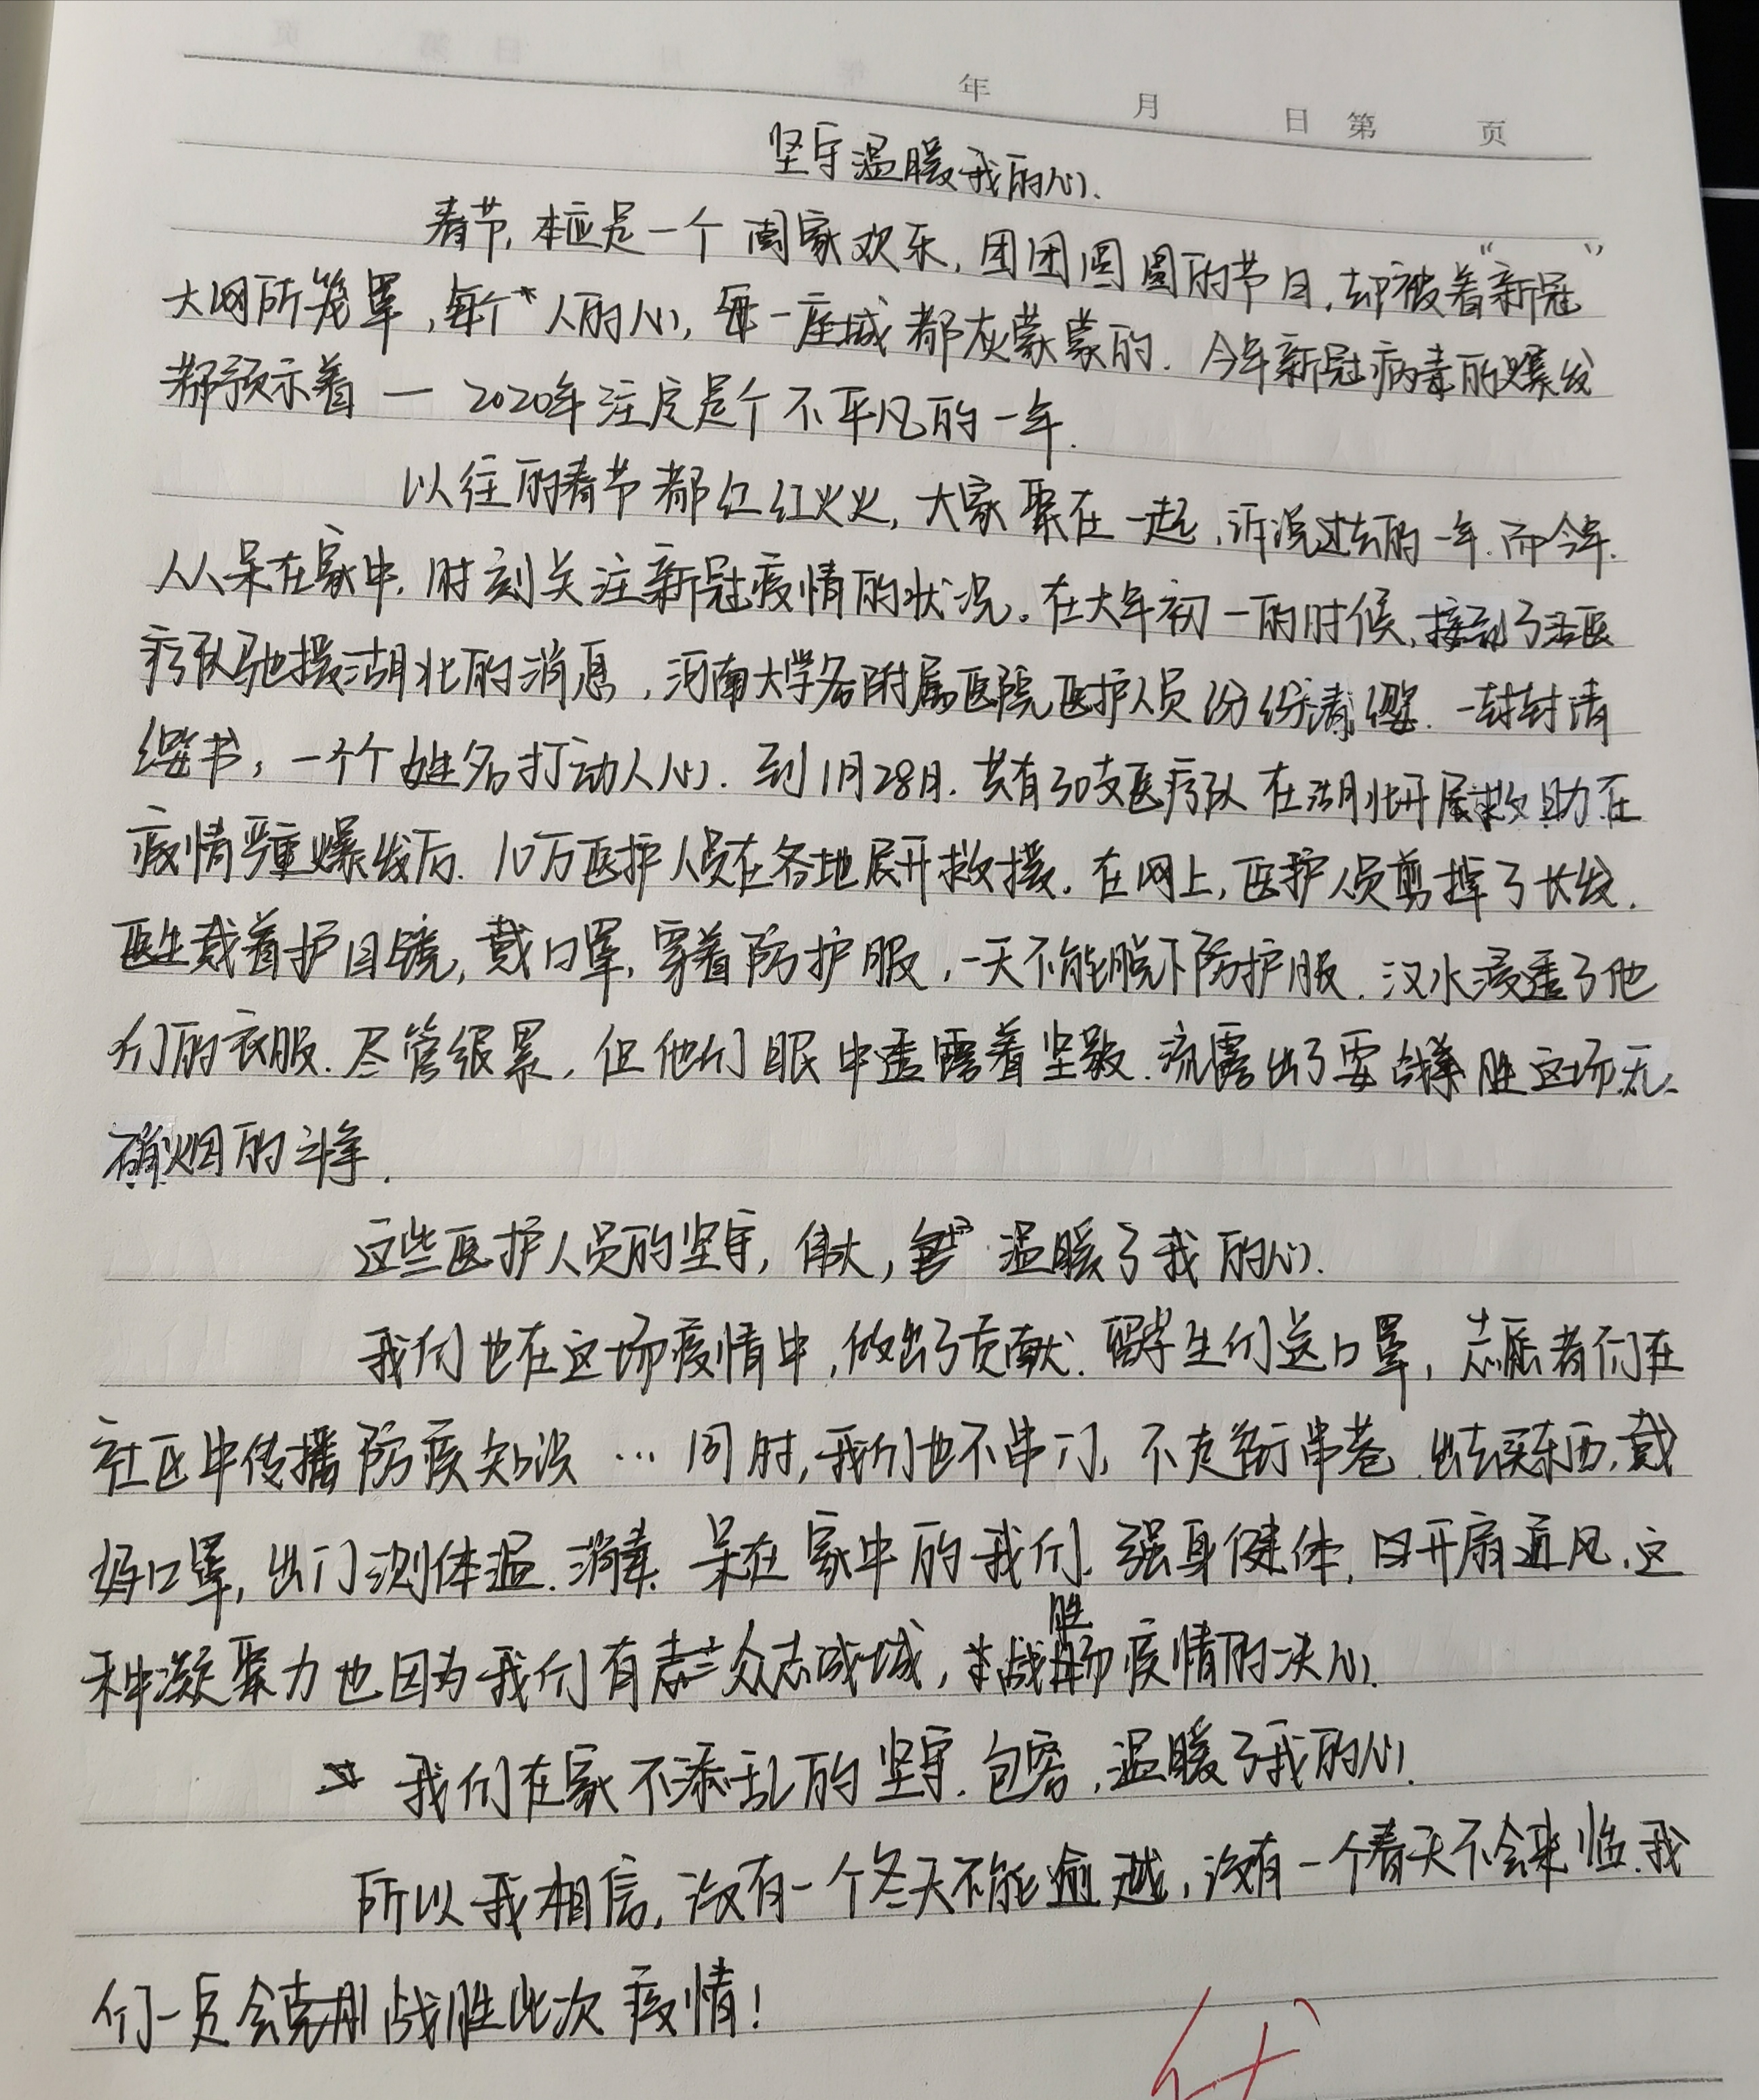 年 月 日 第 页
坚守温暖我的心.
春节,本应是一个阖家欢乐,团团圆圆的节日,却被着“新冠”
大网所笼罩,每个人的心,每一座城都灰蒙蒙的.今年新冠病毒的爆发
都预示着—2020年注定是个不平凡的一年.
以往的春节都红红火火,大家聚在一起,诉说过去的一年.而今年.
人人呆在家中,时刻关注新冠疫情的状况。在大年初一的时候,接到了医
疗队驰援湖北的消息,河南大学各附属医院医护人员份份请缨.一封封请
缨书,一个个姓名打动人心.到1月28日.共有30支医疗队在湖北开展救助在
疫情严重爆发后.10万医护人员在各地展开救援.在网上,医护人员剪掉了长发.
医生戴着护目镜,戴口罩,穿着防护服,一天不能脱下防护服.汉水浸透了他
们的衣服.尽管很累,但他们眼中透露着坚毅.流露出了要战胜这场无
硝烟的斗争.
这些医护人员的坚守,伟大,温暖了我的心.
我们也在这场疫情中,做出了贡献.留学生们送口罩,志愿者们在
社区中传播防疫知识…同时,我们也不串门,不走街串巷.出去买东西,戴
好口罩,出门测体温.消毒.呆在家中的我们.强身健体,开扇通风.这
种凝聚力也因为我们有众志成城,战胜疫情的决心.
我们在家不添乱的坚守.包容,温暖了我的心.
所以我相信,没有一个冬天不能逾越,没有一个春天不会来临.我
们一定会战胜此次疫情!
优